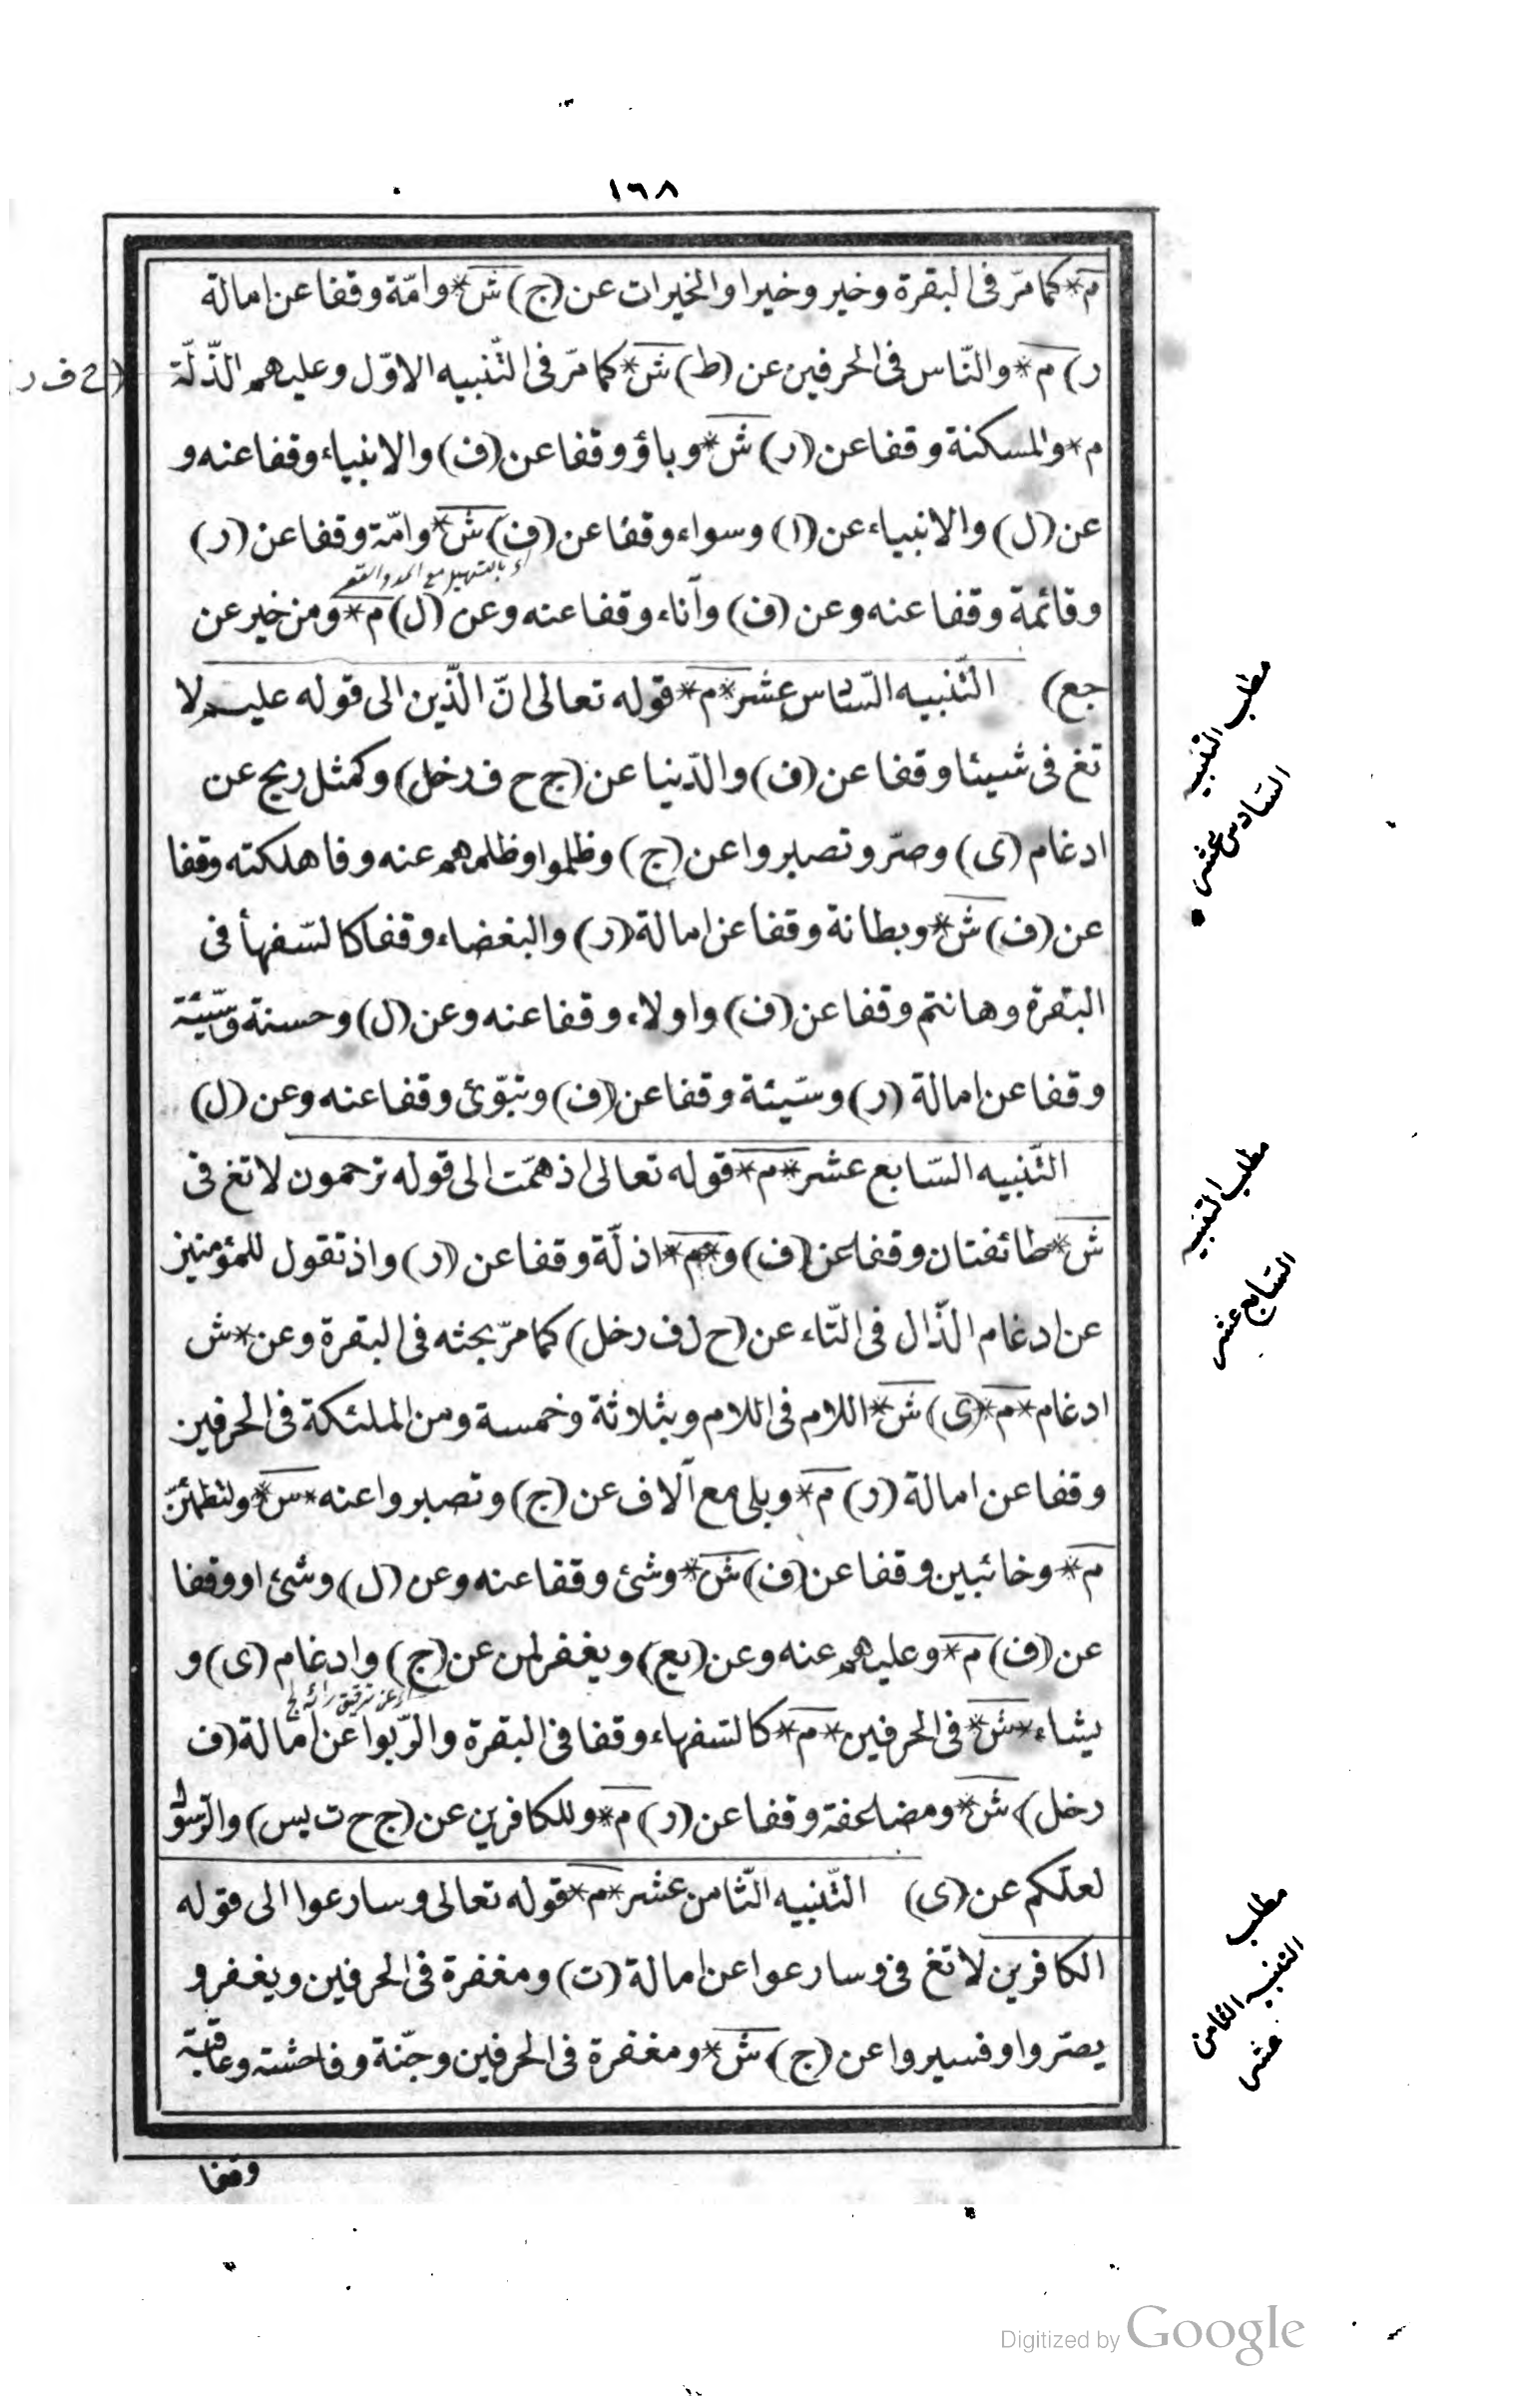 ١٦٨
م* كما مرّ فى البقرة وخير وخيرا والخيرات عن (ج) ش* وامّة وقفا عن امالة
ر) م* والنّاس فى الحرفين عن (ط) ش* كما مرّ فى التّنبيه الاوّل وعليهم الذّلّة (ح ف ر)
م* والمسكنة وقفا عن (ر) ش* وباؤ وقفا عن (ف) والانبياء وقفا عنه و
عن (ل) والانبياء عن (ا) وسواء وقفا عن (ف) ش* وامّة وقفا عن (ر)
بالتسهيل مع المد والقصر
وقائمة وقفا عنه وعن (ف) وآناء وقفا عنه وعن (ل) م* ومن خير عن
جع) التّنبيه السّادس عشر *م* قوله تعالى انّ الّذين الى قوله عليم لا
تغ فى شيئا وقفا عن (ف) والدّنيا عن (ج ح ف رخل) وكمثل ريح عن
ادغام (ى) وصرّ وتصبروا عن (ج) وظلموا وظلمهم عنه وفاهلكته وقفا
عن (ف) ش* وبطانة وقفا عن امالة (ر) والبغضاء وقفا كالسّفهأ فى
البقرة وهانتم وقفا عن (ف) واولاء وقفا عنه وعن (ل) وحسنة وسّيّئة
وقفا عن امالة (ر) وسّيئة وقفا عن (ف) وتبوّئ وقفا عنه وعن (ل)
التّنبيه السّابع عشر *م* قوله تعالى اذ همّت الى قوله ترحمون لا تغ فى
ش* طائفتان وقفا عن (ف) و*م* اذلّة وقفا عن (ر) واذ تقول للمؤمنين
عن ادغام الذّال فى التّاء عن (ح ل ف رخل) كما مرّ بحثه فى البقرة وعن *ش
ادغام *م* (ى) ش* اللام فى اللام وبثلاثة وخمسة ومن الملئكة فى الحرفين
وقفا عن امالة (ر) م* وبلى مع آلاف عن (ج) وتصبروا عنه *س* ولتطمئنّ
م* وخائبين وقفا عن (ف) ش* وشئ وقفا عنه وعن (ل) وشئ او وقفا
عن (ف) م* وعليهم عنه وعن (يع) ويغفر لمن عن (ج) وادغام (ى) و
عن ترقيق رائه لج
يشاء *ش* فى الحرفين *م* كالسّفهاء وقفا فى البقرة والرّبوا عن امالة (ف
رخل) ش* ومضاعفة وقفا عن (ر) م* وللكافرين عن (ج ح ت يس) والرّسول
لعلّكم عن (ى) التّنبيه الثّامن عشر *م* قوله تعالى وسارعوا الى قوله
الكافرين لا تغ فى وسارعوا عن امالة (ت) ومغفرة فى الحرفين ويغفر و
يصرّوا وفسيروا عن (ج) ش* ومغفرة فى الحرفين وجنّة وفاحشة وعاقبة
وقفا
مطلب التنبيه
السّادس عشر
مطلب التنبيه
السّابع عشر
مطلب
التنبيه الثامن
عشر
Digitized by Google